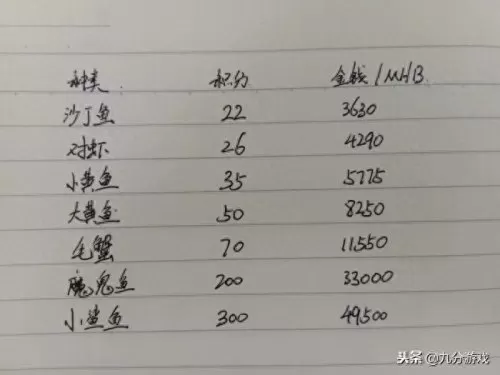 种类 积分 金钱/MHB
沙丁鱼 22 3630
对虾 26 4290
小黄鱼 35 5775
大黄鱼 50 8250
毛蟹 70 11550
魔鬼鱼 200 33000
小鲨鱼 300 49500
头条 @九分游戏